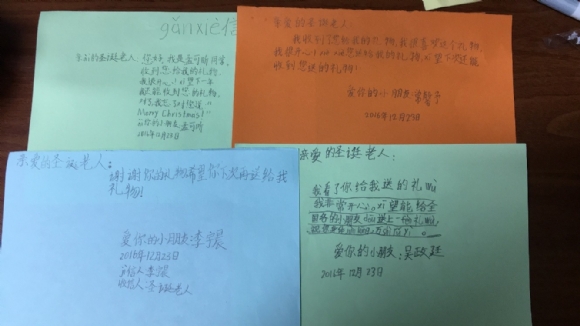 gǎnxiè信
亲爱的圣诞老人：您好，我是孟可昕同学，
收到您给我的礼物，
我很开心！xī望下一年
我还能收到您的礼物。
Merry Christmas!
2016年12月23日
亲爱的圣诞老人：
我收到了您给我的礼物，我很喜欢这个礼物，
收到您送的礼物！
爱你的小朋友：
2016年12月23日
亲爱的圣诞老人：
谢谢你的礼物希望你下次再送给我
礼物！
爱你的小朋友李锾
2016年12月23日
收给人圣诞老人
亲爱的圣诞老人：
我看了你给我送的礼wù
我非常开心，xī望能给全
世界的小朋友们送上一份礼wù，
爱你的小朋友：吴政廷
2016年12月23日